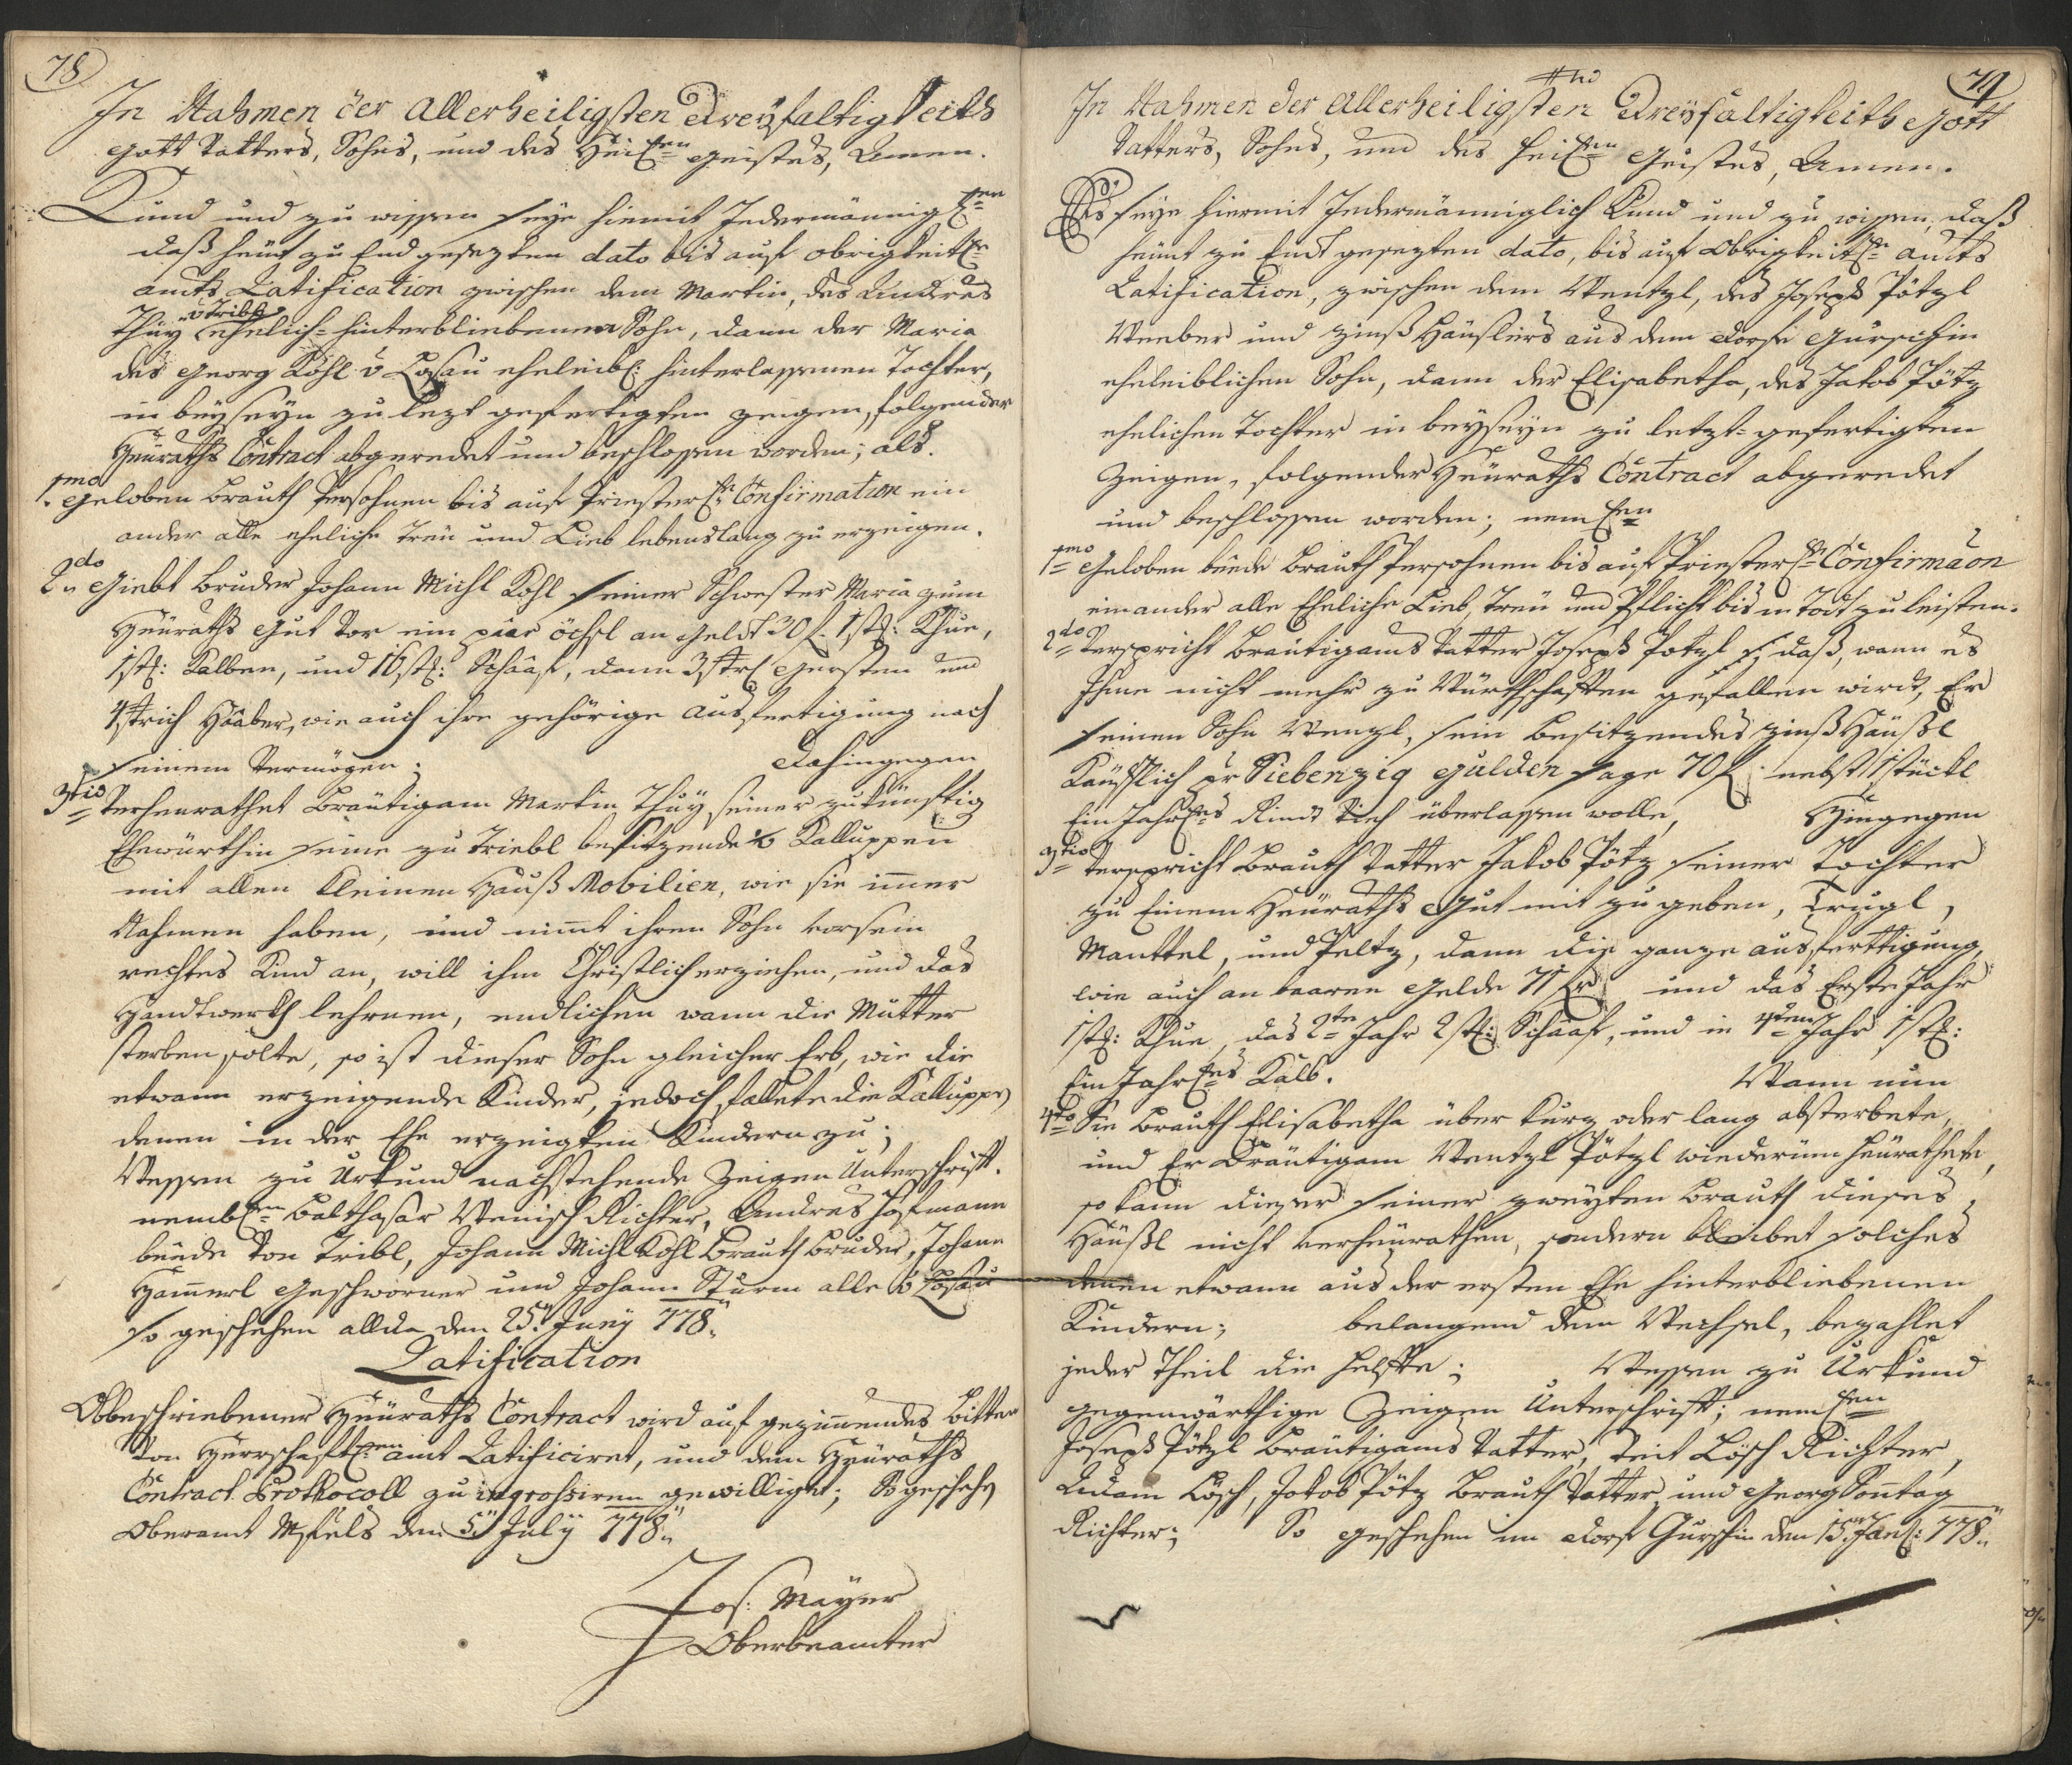 78
In Nahmen der Allerheiligsten Dreyfaltigkeits
Gott Vatters, Sohns, und des Heil: Geistes, Amen.
Kund und zu wissen seye hiemit Jedermänniglen
daß heünt zu End gesezten dato bis auf obrigkeitl:
amts Ratification zwischen dem Martin, des Andreas
v Tribl
Thuy ehelich-hinterbliebenen Sohn, dann der Maria
des Georg Kohl v Losau eheleibl: hinterlassenen Tochter,
in beyseyn zu lezt gefertigten zeugen, folgender
Heüraths Contract abgeredet und beschlossen worden; als.
1mo Geloben Brauth Persohnen bis auf Priesterl: Confirmation ein
ander alle eheliche Treü und Lieb lebenslang zu erzeigen.
2do Giebt Bruder Johann Michl Kohl seiner Schwester Maria zum
Heüraths Gut vor ein paar öchsl an Geldt 30 f. 1 st: Khue,
1 st: Kalben, und 16 st: Schaaf, dann 3 str: Gersten und
4 strich Haaber, wie auch ihre gehörige Ausfertigung nach
seinem Vermögen; Dahingegen
3tio Verheurathet Bräutigam Martin Thuy seiner zukünftig
Ehewürthin seine zu Triebl besitzende Kalluppen
mit allen kleinen Hauß Mobilien, wie sie immer
Nahmen haben, und nimt ihren Sohn vor sein
rechtes Kind an, will ihm Christlich erziehen, und das
Handtwerkh lehrnen, endlichen wann die Mutter
sterben solte, so ist dieser Sohn gleicher Erb, wie die
etwann erzeigende Kinder, jedoch fallete die Kaluppe
denen in der Ehe erzeigten Kindern zu;
Wessen zu Urkund nachstehende Zeigen Unterschrift.
nembl: Balthasar Wenisch Richter, Andres Hofmann
beede von Tribl, Johann Michl Kohl Brauth Bruder, Johann
Hamerl Geschworner und Johann Sturm alle v Losau
so geschehen allda den 25. Juny 778
Ratification
Obbeschriebener Heüraths Contract wird auf geziemendes Bitten
von Herrschaftl: amt Ratificiret, und dem Heüraths
Contract Prothocoll zu ingrossiren gewilliget; So geschehen
Oberamt den 5. July 778
Jos: Mayer
Oberbeamter
79
In Nahmen der Allerheiligsten Dreyfaltigkeits Gott
Vatters, Sohns, und des Heil: Geistes, Amen.
Es seye hiermit Jedermänniglich Kund und zu wissen, daß
heünt zu End gesezten dato, bis auf Obrigkeitl: amts
Ratification, zwischen dem Wentzl, des Joseph Pötzl
Weeber und Zinß Häuslers aus dem dorfe Gurschin
eheleiblichen Sohn, dann der Elisabetha, des Jakob Pötz
ehelichen Tochter in beyseyn zu letzt-gefertigten
Zeigen, folgender Heüraths Contract abgeredet
und beschlossen worden; neml:
1mo Geloben beede Brauth Persohnen bis auf Priesterl: Confirmaon
einander alle Eheliche Lieb, Treü und Pflicht bis in Todt zu leisten.
2do Verspricht Bräutigams Vatter Joseph Potzl daß, wann es
Ihme nicht mehr zu Würthschafften gefallen wirdt, Er
seinen Sohn Wenzl, sein besitzendes Zinß Häußl
Käufflich pr Siebenzig Gulden sage 70 f: nebst 1 stückl
Ein Jähriges Rind Vieh überlassen wolle, Hingegen
3tio Verspricht Brauth Vatter Jakob Pötz seiner Tochter
zu Einem Heüraths Gut mit zu geben, Trugl,
Manttel, und Peltz, dann die ganze Ausferttigung,
wie auch an baaren Gelde und das Erste Jahr
1 st: Khue, das 2te Jahr 2 st: Schaaf, und in 4ten Jahr 1 st:
Ein Jähriges Kalb. Wann nun
4to Die Brauth Elisabetha über kurz oder lang absterbete,
und Er Bräutigam Wentzl Pötzl wiederum heürathete,
so kann dieser seiner zweyten Brauth dieses
Häußl nicht verheürathen, sondern bleibet solches
denen etwann aus der ersten Ehe hinterbliebenen
Kindern; belangend dem Wechsel, bezahlet
jeder Theil die helfte; Wessen zu Urkund
gegenwärthige Zeigen Unterschrift; neml:
Joseph Pötzl Bräutigams Vatter, Veit Lösch Richter,
Adam Lösch, Jakob Pötz Brauth Vatter und Georg Sontag
Richter; So geschehen im Dorf Gurschin den 15. Jan: 778